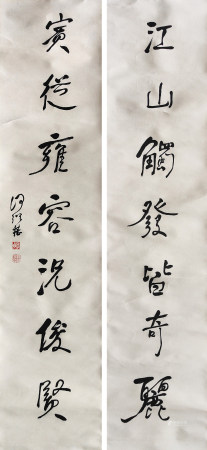 江山觸發皆奇麗
賓從雍容況俊賢
何紹基